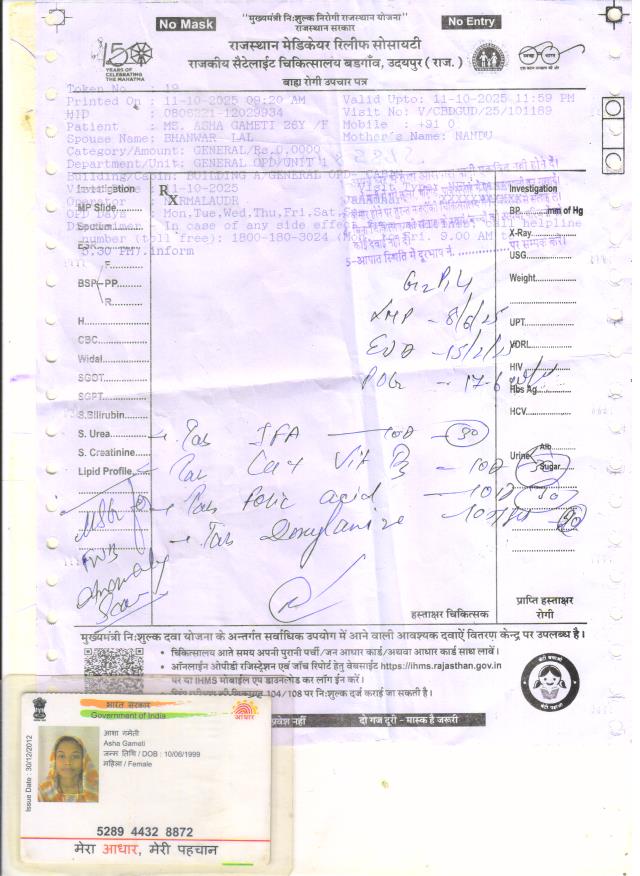 No Mask
"मुख्यमंत्री निःशुल्क निरोगी राजस्थान योजना"
राजस्थान सरकार
No Entry
राजस्थान मेडिकेयर रिलीफ सोसायटी
राजकीय सैटेलाईट चिकित्सालय बडगाँव, उदयपुर ( राज. )
बाह्य रोगी उपचार पत्र
150
YEARS OF
CELEBRATING
THE MAHATMA
Token No : 19
Printed On : 11-10-2025 09:20 AM Valid Upto: 11-10-2025 11:59 PM
HID : 0806321-12029934 Visit No: V/CBDGUD/25/101189
Patient : MS. ASHA GAMETI 26Y /F Mobile : +91 0
Spouse Name: BHANWAR LAL Mother's Name: NANDU
Category/Amount: GENERAL/Rs.0.0000
Department/Unit: GENERAL OPD/UNIT 1
Building/Cabin: BUILDING A/GENERAL OPD-
11-10-2025
Operator : NIRMALAUDR
OPD Days : Mon,Tue,Wed,Thu,Fri,Sat,
Disclaimer : In case of any side effect
number (toll free): 1800-180-3024 (Mon- Fri. 9.00 AM to
5.30 PM).inform
5-आपात स्थिति में दूरभाष नं. ............ पर सम्पर्क करें।
Investigation
Rx
MP Slide
Sputum
ESR
F
BSP-PP
R
H
CBC
Widal
SGOT
SGPT
S.Bilirubin
S. Urea
S. Creatinine
Lipid Profile
Investigation
BP mm of Hg
X-Ray
USG
Weight
UPT
VDRL
HIV
Hbs Ag
HCV
Urine Alb
Sugar
LMP - 8/6/25
EDD - 15/2/25
POG - 17-6
Tab IFA - 10D (30)
Tab Vit D3 - 10D (30)
Tab Folic acid - 10D
Tab Doxylamine (30)
USG for
FWB
Anomaly
Scan
हस्ताक्षर चिकित्सक
प्राप्ति हस्ताक्षर
रोगी
मुख्यमंत्री निःशुल्क दवा योजना के अन्तर्गत सर्वाधिक उपयोग में आने वाली आवश्यक दवाऐं वितरण केन्द्र पर उपलब्ध है।
• चिकित्सालय आते समय अपनी पुरानी पर्ची/जन आधार कार्ड/अथवा आधार कार्ड साथ लावें।
• ऑनलाईन ओपीडी रजिस्ट्रेशन एवं जाँच रिपोर्ट हेतु वेबसाईट https://ihms.rajasthan.gov.in
पर या IHMS मोबाईल एप डाउनलोड कर लॉग ईन करें।
104/108 पर निःशुल्क दर्ज कराई जा सकती है।
बेटी बचाओ
बेटी पढ़ाओ
प्रवेश नहीं
दो गज दूरी - मास्क है जरूरी
भारत सरकार
Government of India
आधार
आशा गमेती
Asha Gameti
जन्म तिथि / DOB : 10/06/1999
महिला / Female
Issue Date : 30/12/2012
5289 4432 8872
मेरा आधार, मेरी पहचान